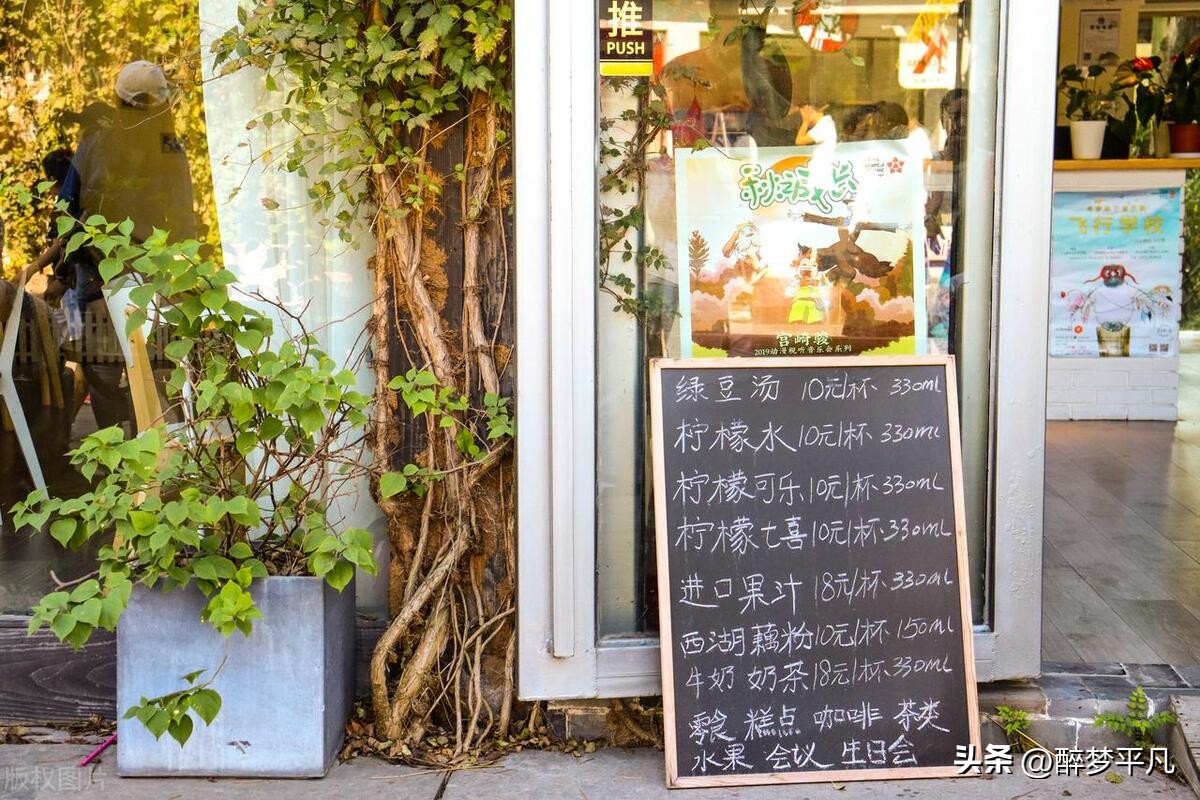 推
PUSH
宫崎骏
2019动漫视听音乐会系列
飞行学校
绿豆汤 10元/杯 330ml
柠檬水 10元/杯 330ml
柠檬可乐 10元/杯 330ml
柠檬七喜 10元/杯 330ml
进口果汁 18元/杯 330ml
西湖藕粉 10元/杯 150ml
牛奶 奶茶 18元/杯 330ml
零食 糕点 咖啡 茶类
水果 会议 生日会
头条 @醉梦平凡
版权图片